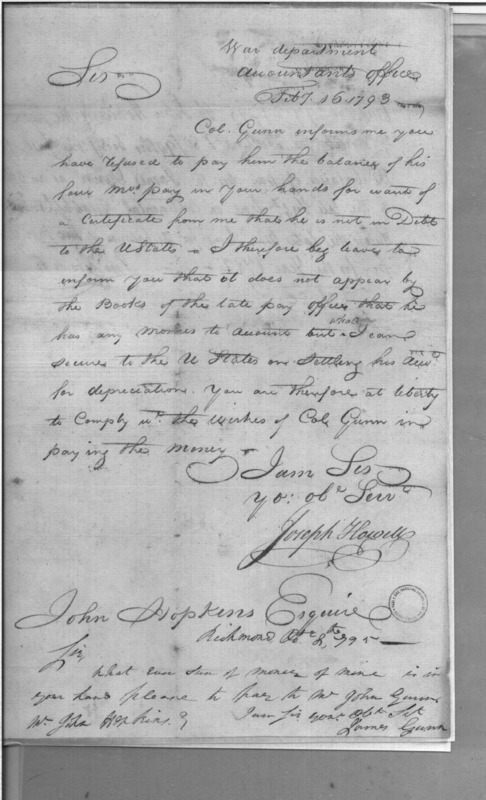 War department
Accountants office
Feby. 16 1793
Sir
Col. Gunn informs me you
have refused to pay him the balance of his
four Mos. pay in your hands for want of
a Certificate from me that he is not in Debt
to the U States. I therefore beg leave to
inform you that it does not appear by
the Books of the late pay office that he
has any monies to account but what I can
secure to the U States on settling his Accts.
for depreciation. You are therefore at liberty
to comply wt. the wishes of Col. Gunn in
paying the money
I am Sir
yo: obt Servt
Joseph Howell
John Hopkins Esquire
Richmond 1795
Sir,
what ever sum of money of mine is in
your hand please to pay to Mr John Gunn
I am Sir your Obt St
Mr. John Hopkins
James Gunn